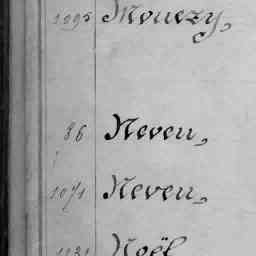 1095 Mouëzy,
86 Neven,
1071 Neven,
1131 Noël